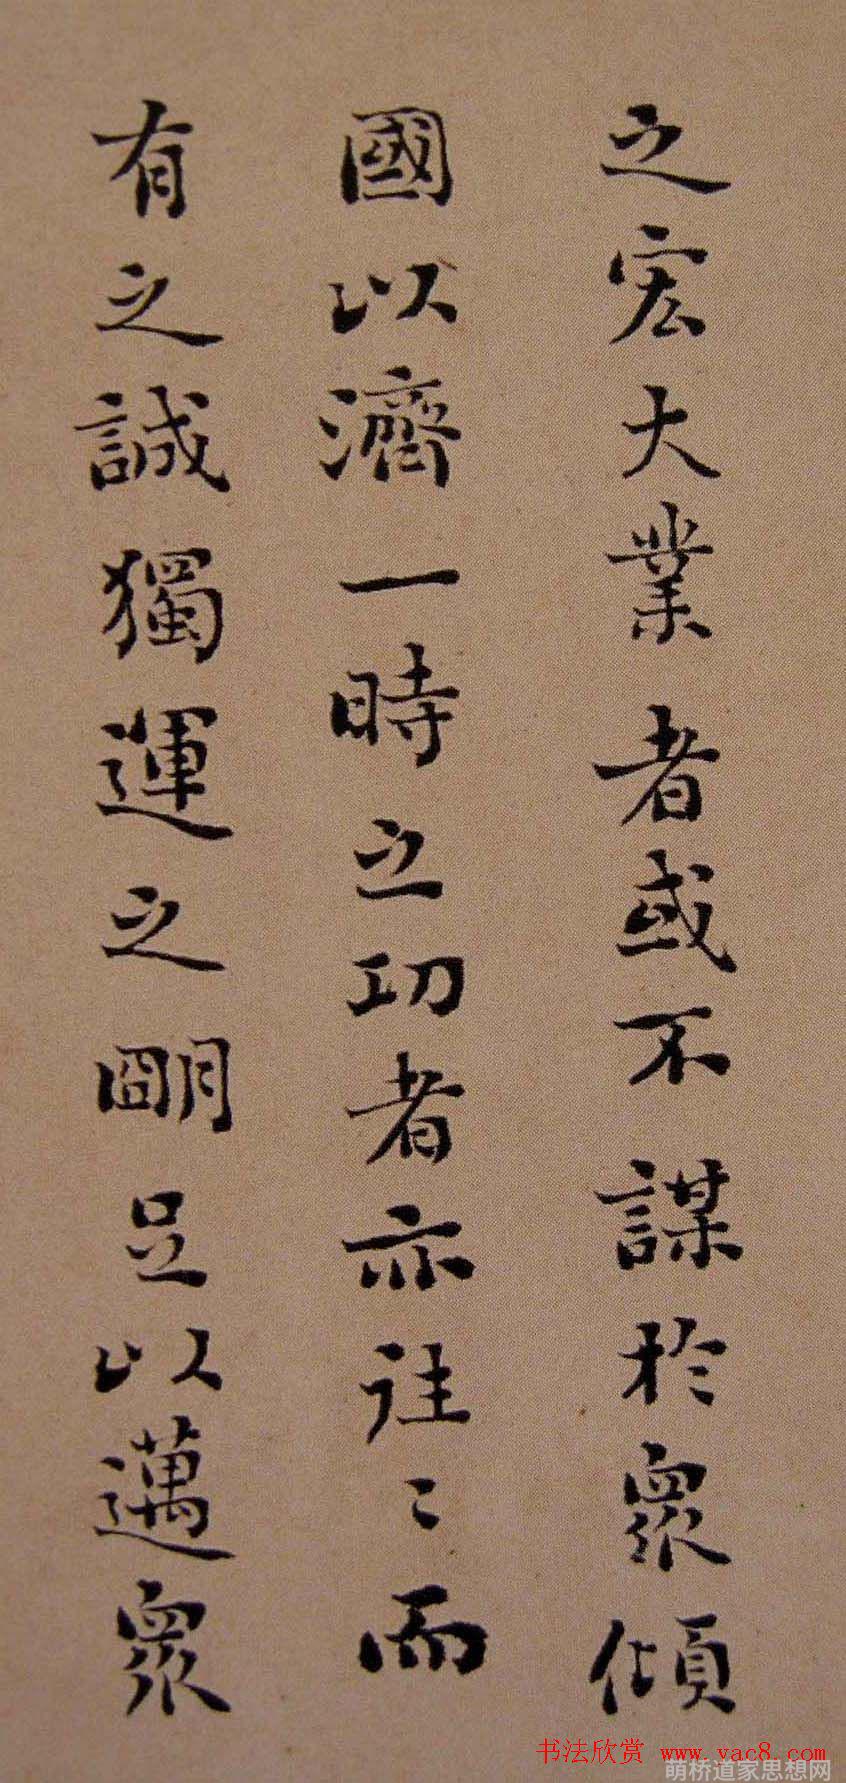 之宏大業者或不謀於眾傾
國以濟一時之功者亦往々而
有之誠獨運之朙足以邁眾
书法欣赏 www.yac8.com
萌桥道家思想网